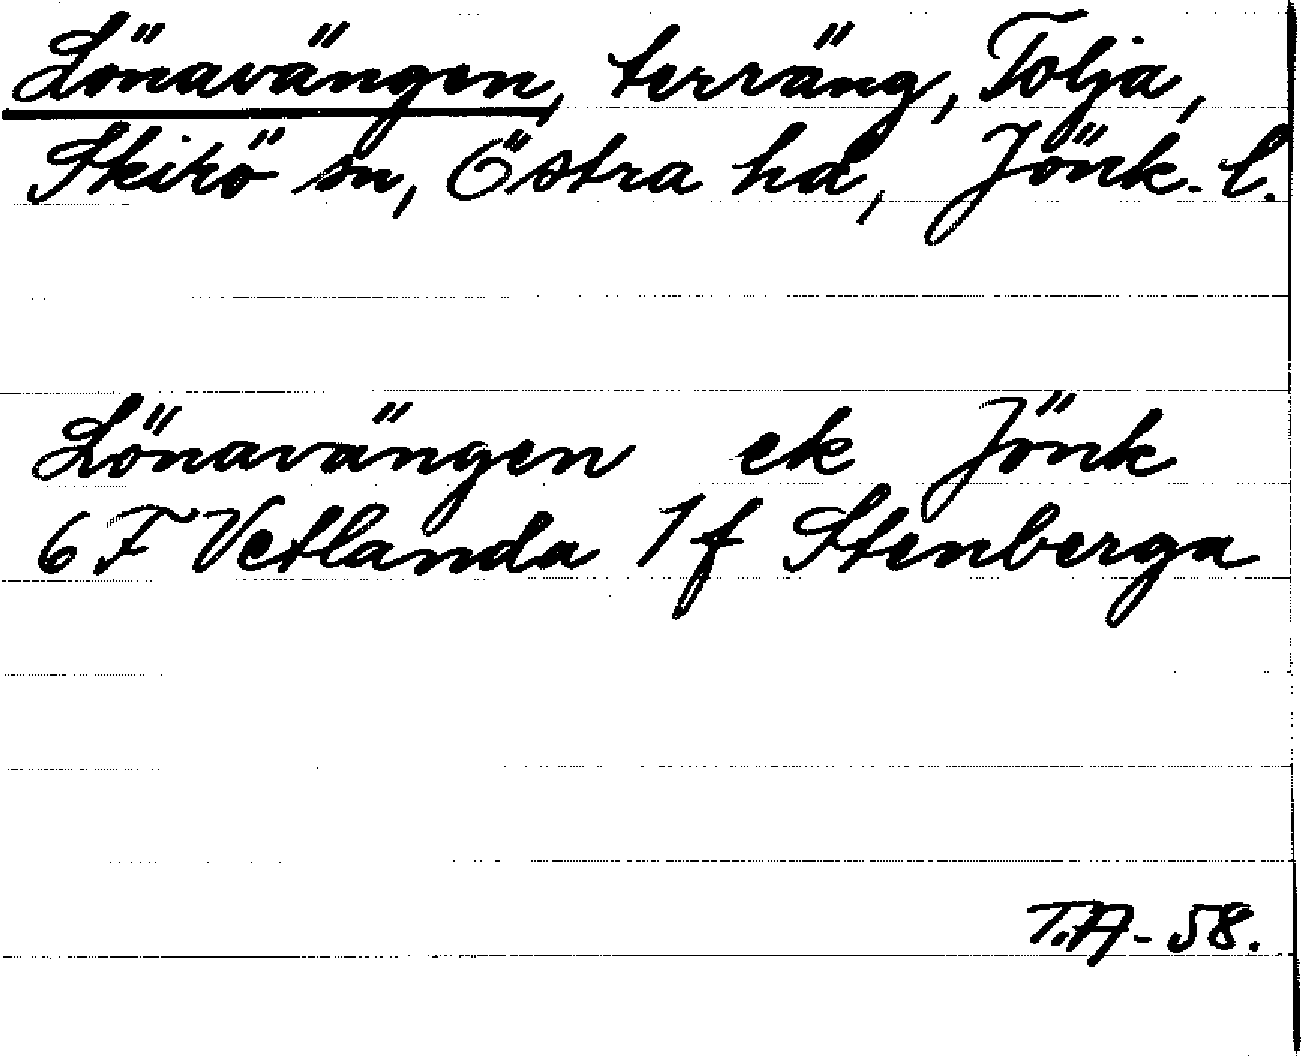 Lönavängen, terräng, Tolja,
Skirö sn, Östra hd, Jönk. l.
Lönavängen ek Jönk
6 F Vetlanda 1 f Stenberga
T.A - 58.